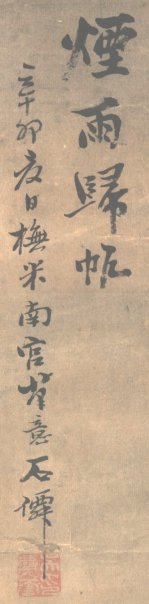 煙雨歸帆
辛卯夏日橅米南宮筆意石僊